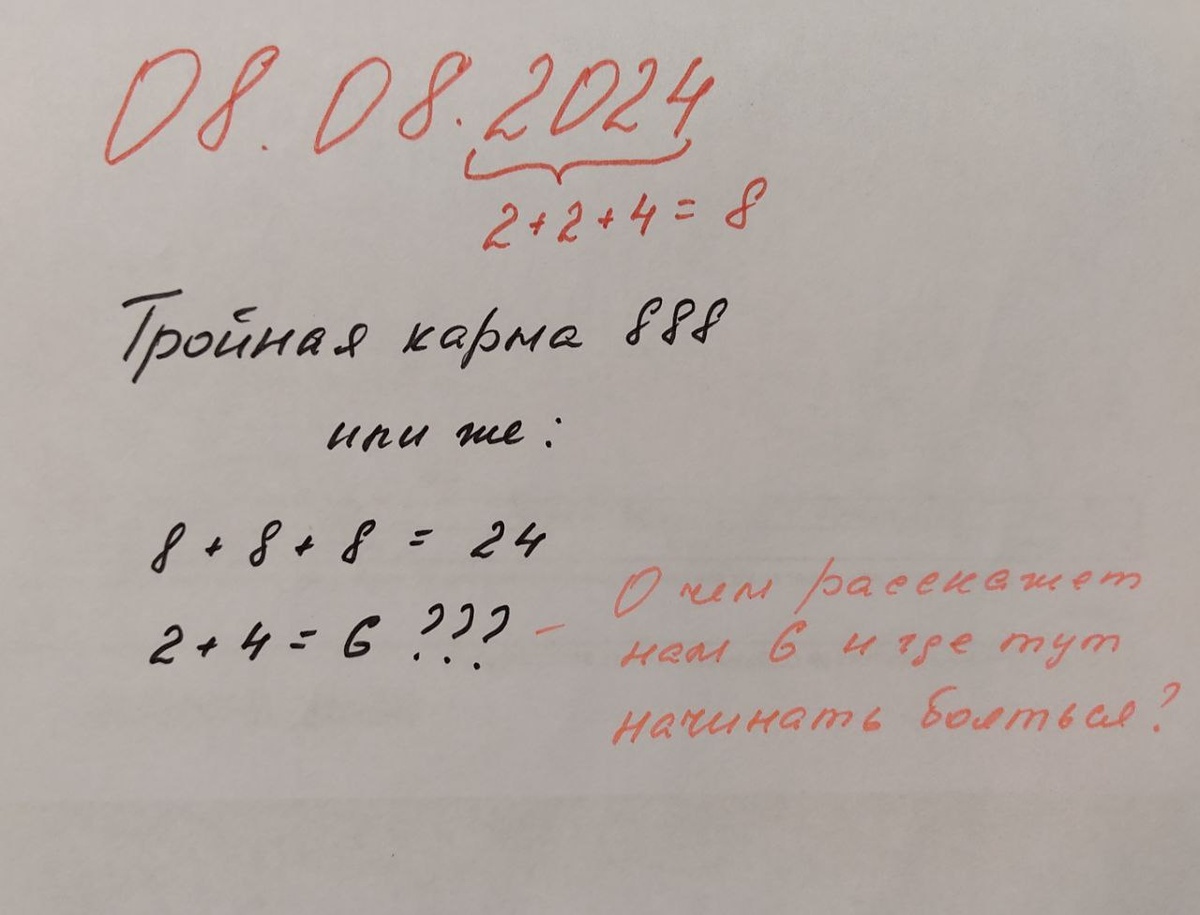 08.08.2024
2+2+4=8
Тройная карма 888
или же:
8+8+8=24
2+4=6 ??? – О чем расскажет
нам 6 и где тут
начинать бояться?